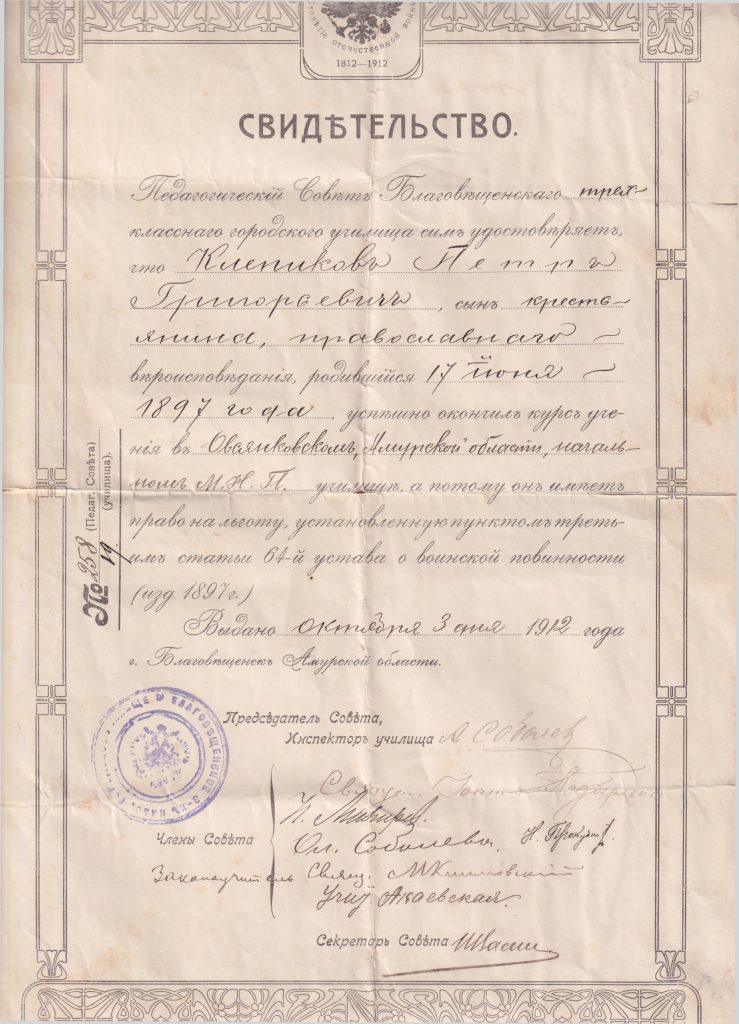 столѣтіе отечественной войны
1812—1912
СВИДѢТЕЛЬСТВО.
Педагогическій Совѣтъ Благовѣщенскаго трех-
класснаго городского училища симъ удостовѣряетъ,
что Клепиковъ Петръ
Григорьевичъ, сынъ кресть-
янина, православнаго
вѣроисповѣданія, родившійся 17 іюня
1897 года, успѣшно окончилъ курсъ уче-
нія въ Овсянковскомъ, Амурской области, началь-
номъ М. Н. П. училищѣ, а потому онъ имѣетъ
право на льготу, установленную пунктомъ треть-
имъ статьи 64-й устава о воинской повинности
(изд. 1897 г.)
Выдано октября 3 дня 1912 года
г. Благовѣщенскъ Амурской области.
№ 258
19
(Педаг. Совѣта)
(училища).
Предсѣдатель Совѣта,
Инспекторъ училища А. Соболев
Свящ. Іоаннъ
Ол. Соболева.
Члены Совѣта
Законоучитель Свящ.
Учит. Акаевская.
Секретарь Совѣта